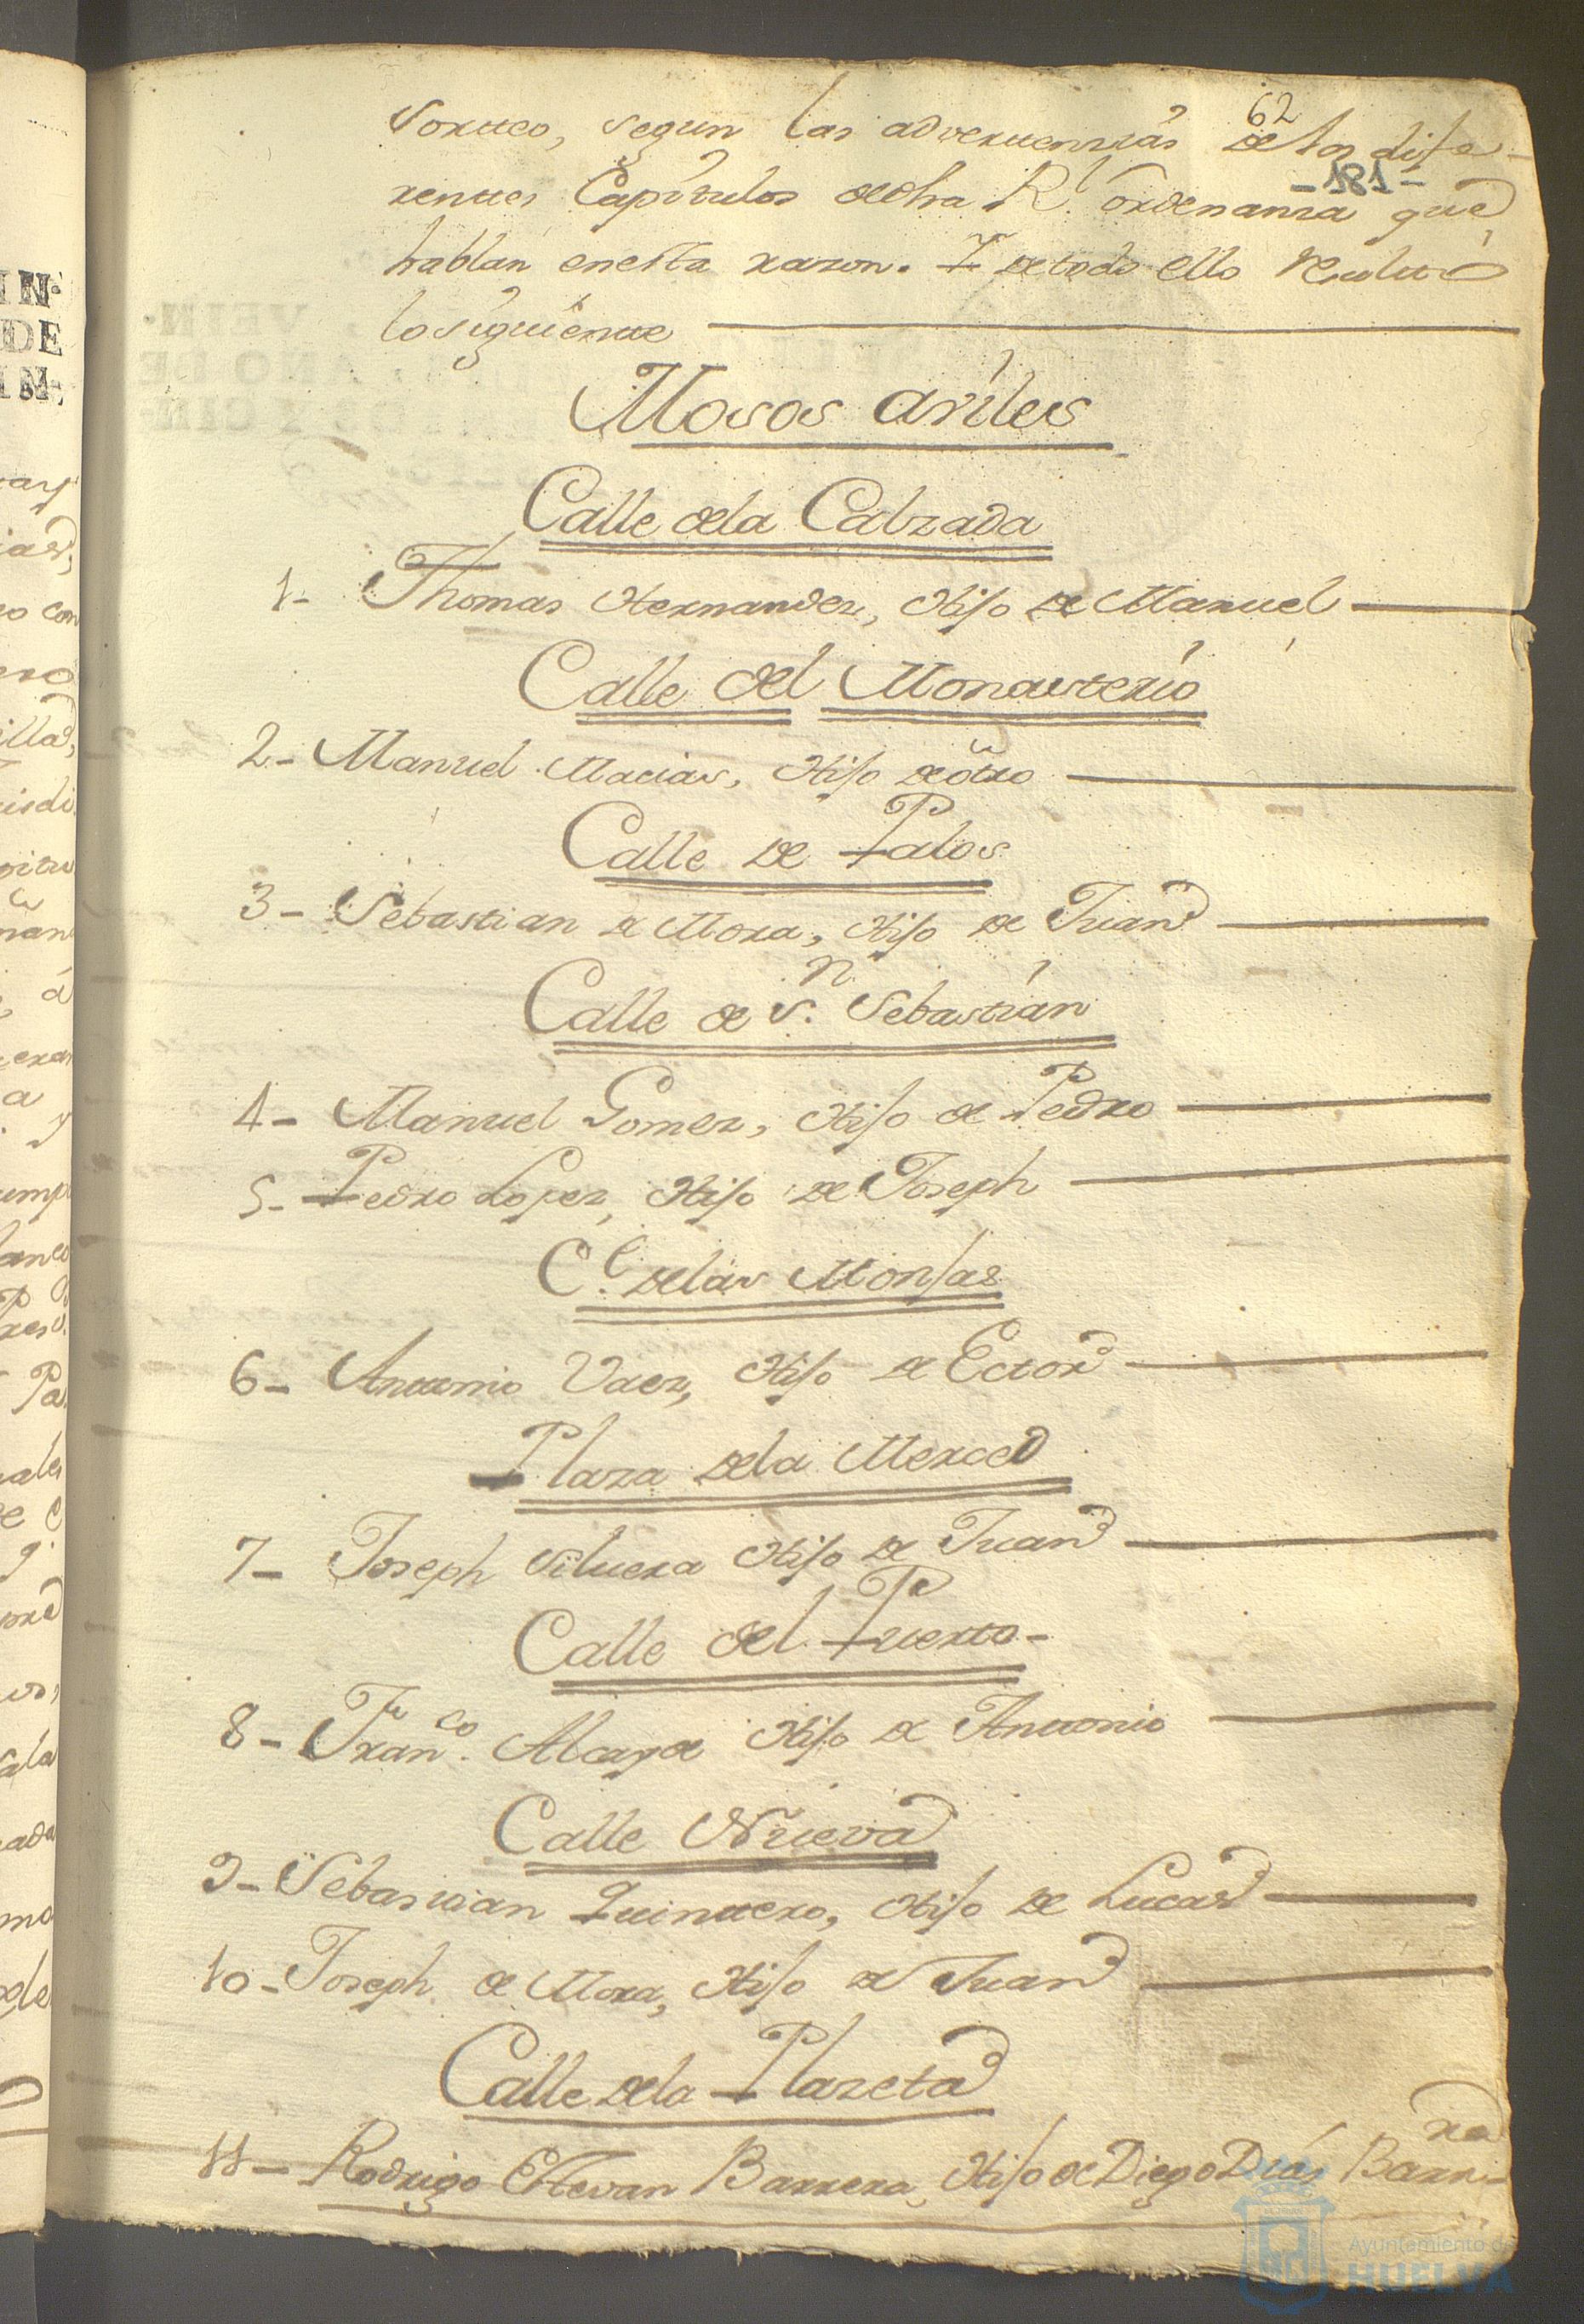 62
Sorteo, segun las advertenzias de los dife-
-181-
rentes Capitulos de dha Rl. ordenanza que
hablan en esta razon. Y de todo ello resultó
lo siguiente
Mosos avíles
Calle dela Calzada
1- Thomas Hernandez, Hijo de Manuel
Calle del Monasterio
2- Manuel Macias, Hijo de otro
Calle de Palos
3- Sebastian de Mora, Hijo de Juan
Calle de Sn. Sebastían
4- Manuel Gomez, Hijo de Pedro
5- Pedro Lopez, Hijo de Joseph
Ce. delas Monjas
6- Antonio Vaez, Hijo de Ector
Plaza dela Merced
7- Joseph Siluera Hijo de Juan
Calle del Puerto-
8- Franco. Alcayde Hijo de Antonio
Calle Nueva
9- Sebastian Quintero, Hijo de Lucas
10- Joseph de Mora, Hijo de Juan
Calle dela Plazeta
11- Rodrigo Estevan Barrera, Hijo de Diego Dias Barre-
ra
IN-
DE
IN-
Ayuntamiento de
HUELVA